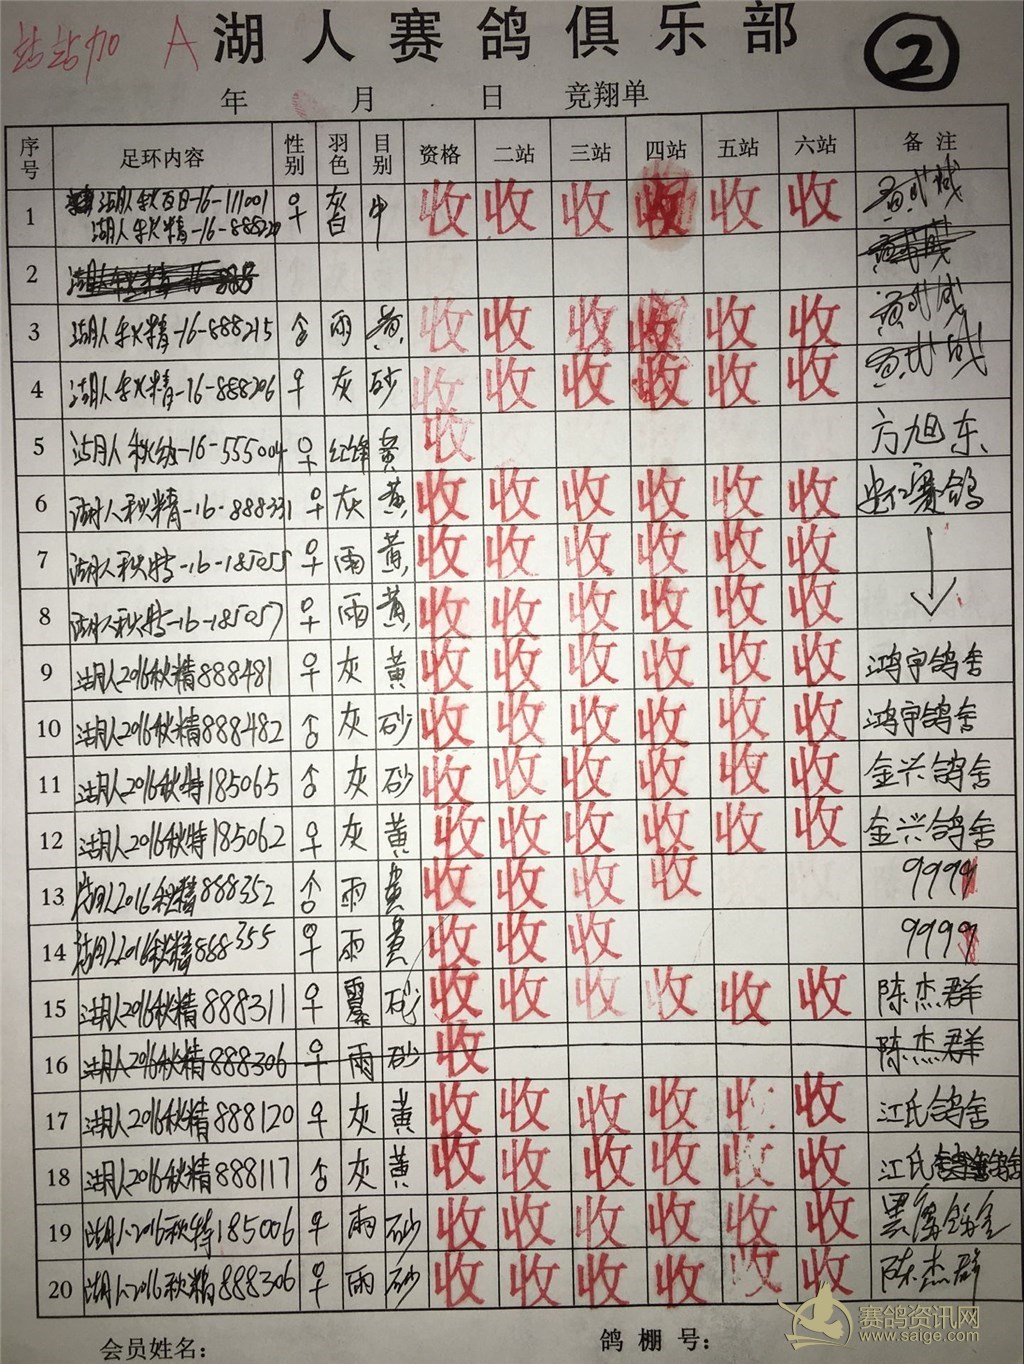 站站加 A 湖人赛鸽俱乐部 ②
年 月 日 竞翔单
序号 足环内容 性别 羽色 目别 资格 二站 三站 四站 五站 六站 备注
1 湖人秋百日-16-111001 ♀ 灰白 牛 收 收 收 收 收 收
湖人秋精-16-888220
2
3 湖人秋精-16-888215 雨 黄 收 收 收 收 收 收
4 湖人秋精-16-888206 ♀ 灰 砂 收 收 收 收 收 收
5 湖人秋-16-555004 ♀ 红绛 黄 收 方旭东
6 湖人秋精-16-888331 ♀ 灰 黄 收 收 收 收 收 收 赛鸽
7 湖人秋特-16-185055 ♀ 雨 黄 收 收 收 收 收 收
8 湖人秋特-16-185057 ♀ 雨 黄 收 收 收 收 收 收
9 湖人2016秋精888481 ♀ 灰 黄 收 收 收 收 收 收 鸿宇鸽舍
10 湖人2016秋精888482 灰 砂 收 收 收 收 收 收 鸿宇鸽舍
11 湖人2016秋特185065 灰 砂 收 收 收 收 收 收 金兴鸽舍
12 湖人2016秋特185062 ♀ 灰 黄 收 收 收 收 收 收 金兴鸽舍
13 湖人2016秋精888352 雨 黄 收 收 收 收 9999
14 湖人2016秋精888355 ♀ 雨 黄 收 收 收 9999
15 湖人2016秋精888311 ♀ 砂 收 收 收 收 收 收 陈杰群
16 湖人2016秋精888306 ♀ 雨 砂 收 陈杰群
17 湖人2016秋精888120 ♀ 灰 黄 收 收 收 收 收 收 江氏鸽舍
18 湖人2016秋精888117 灰 黄 收 收 收 收 收 收 江氏
19 湖人2016秋特185006 ♀ 雨 砂 收 收 收 收 收 收
20 湖人2016秋精888306 ♀ 雨 砂 收 收 收 收 收 收 陈杰群
会员姓名： 鸽棚号：
赛鸽资讯网
www.saige.com